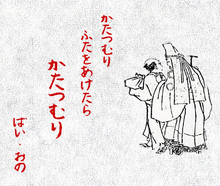 かたつむり
ふたをあけたら
かたつむり
ぱい・おの